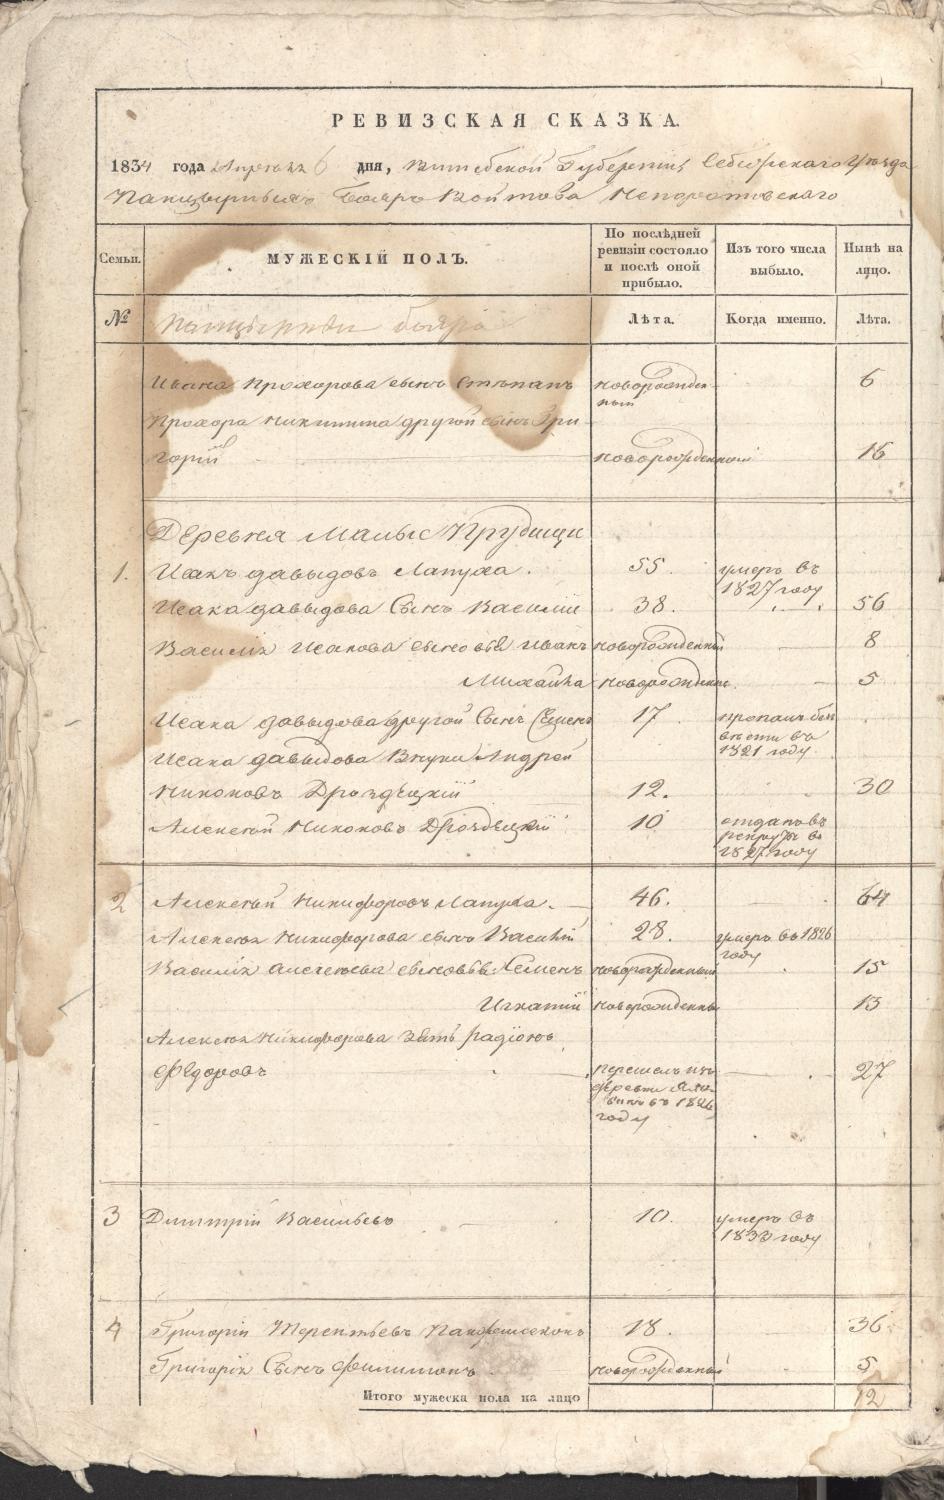 РЕВИЗСКАЯ СКАЗКА.
1834 года Апреля 6 дня, Витебской Губернии, Себежскаго Уезда
Панцырныхъ Бояръ Войтова Непоротовскаго
Семьи.
МУЖЕСКІЙ ПОЛЪ.
По послѣдней ревизіи состояло и послѣ оной прибыло.
Изъ того числа выбыло.
Нынѣ на лицо.
№
Панцырные бояре
Лѣта.
Когда именно.
Лѣта.
Ивана Прохорова сынъ Степанъ новорожденный 6
Прохора Никитина другой сынъ Гри
горій новорожденный 16
Деревня Малыє Прудищи
1. Исакъ Давыдовъ Лапуха. 55. умеръ въ 1827 году
Исака Давыдова Сынъ Василій 38. 56
Василія Исакова сыновья Иванъ новорожденный 8
Михайла новорожденн. 5
Исака Давыдова другой Сынъ Семенъ 17 пропалъ безъ вести въ 1821 году
Исака Давыдова Внуки Андрей
Никоновъ Дроздецкій 12. 30
Алексей Никоновъ Дроздецкій 10 отданъ въ рекруты въ 1827 году
2 Алексей Никифоровъ Лапуха. 46. 64
Алексея Никифорова сынъ Василій 28. умеръ въ 1826 году
Василія Алексеева сыновья Семенъ новорожденный 15
Игнатій новорожденны 13
Алексея Никифорова зять Радіонъ
Федоровъ перешелъ изъ деревни въ 1826 году 27
3 Дмитрій Васильевъ 10. умеръ въ 1833 году
4 Григорій Терентьевъ 18. 36
Григорія Сынъ Филимонъ новорожденный 5
Итого мужеска пола на лицо 12